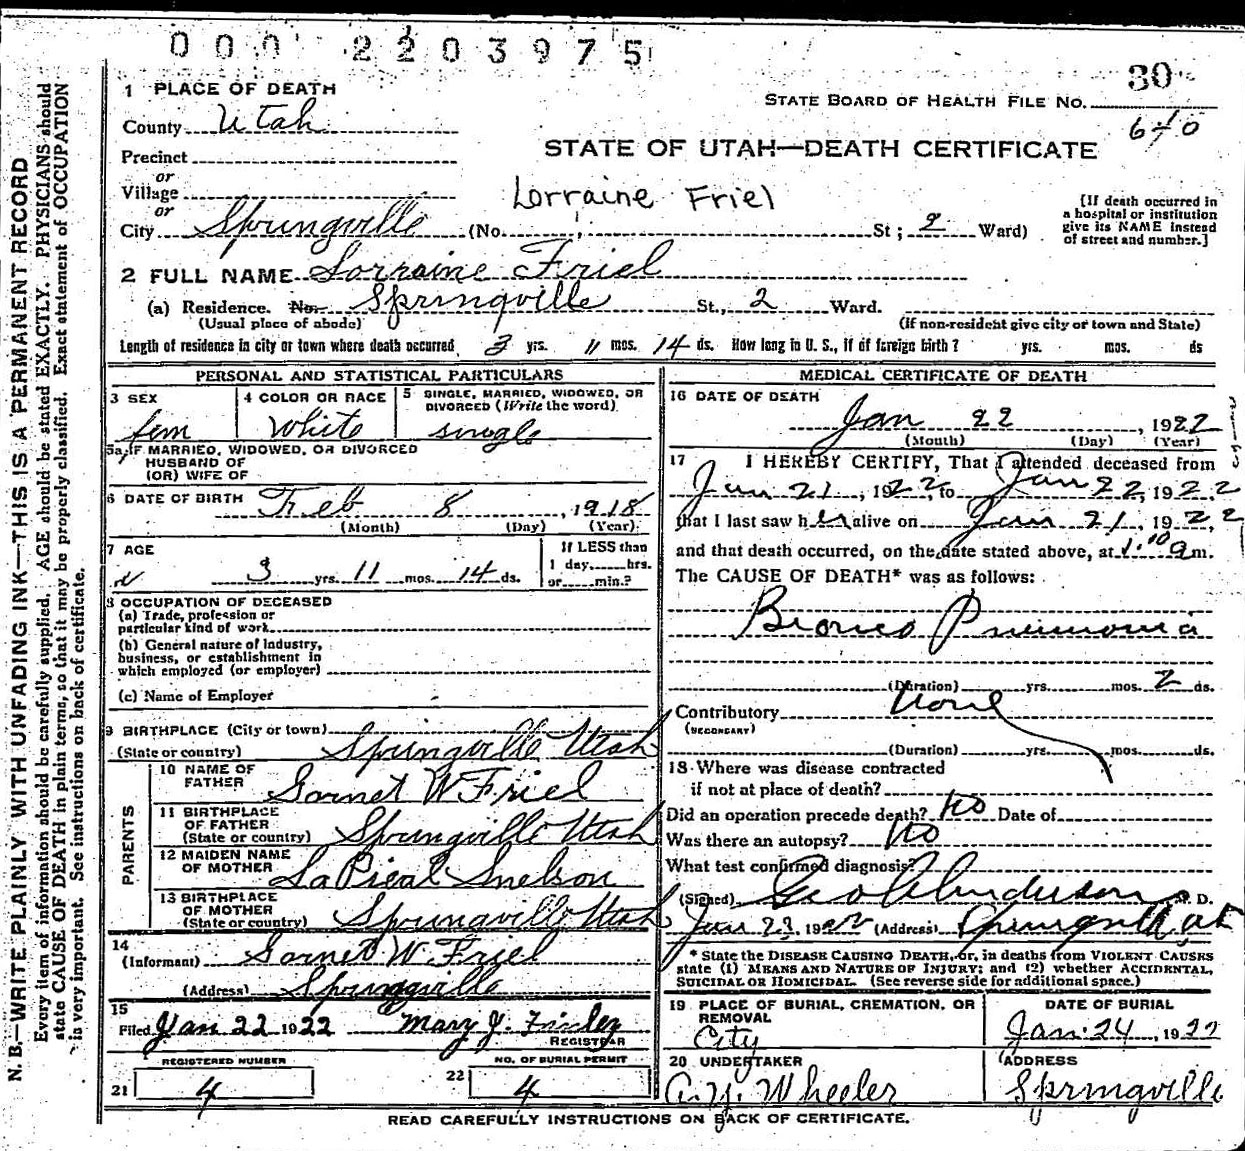 000 2203975
30
1 PLACE OF DEATH
STATE BOARD OF HEALTH FILE NO.
County Utah
STATE OF UTAH—DEATH CERTIFICATE
Precinct
or
Village
Lorraine Friel
[If death occurred in a hospital or institution give its NAME instead of street and number.]
or
City Springville (No. St; 2 Ward)
2 FULL NAME Lorraine Friel
(a) Residence. No. Springville St., 2 Ward.
(Usual place of abode) (If non-resident give city or town and State)
Length of residence in city or town where death occurred 3 yrs. 11 mos. 14 ds. How long in U. S., if of foreign birth? yrs. mos. ds
PERSONAL AND STATISTICAL PARTICULARS
3 SEX
fem
4 COLOR OR RACE
White
5 SINGLE, MARRIED, WIDOWED, OR DIVORCED (Write the word)
single
5a, IF MARRIED, WIDOWED, OR DIVORCED
HUSBAND OF
(OR) WIFE OF
6 DATE OF BIRTH Feb 8, 1918
(Month) (Day) (Year)
7 AGE
3 yrs. 11 mos. 14 ds.
If LESS than
1 day, hrs.
or min.?
8 OCCUPATION OF DECEASED
(a) Trade, profession or
particular kind of work
(b) General nature of industry,
business, or establishment in
which employed (or employer)
(c) Name of Employer
9 BIRTHPLACE (City or town)
(State or country) Springville Utah
PARENTS
10 NAME OF
FATHER Garnet W Friel
11 BIRTHPLACE
OF FATHER
(State or country) Springville Utah
12 MAIDEN NAME
OF MOTHER LaPreal Snelson
13 BIRTHPLACE
OF MOTHER
(State or country) Springville Utah
14
(Informant) Garnet W Friel
(Address) Springville
15
Filed Jan 22 1922 Mary J. Finley
REGISTRAR
REGISTERED NUMBER
21 4
NO. OF BURIAL PERMIT
22 4
MEDICAL CERTIFICATE OF DEATH
16 DATE OF DEATH
Jan 22, 1922
(Month) (Day) (Year)
17 I HEREBY CERTIFY, That I attended deceased from
Jan 21, 1922, to Jan 22, 1922
that I last saw her alive on Jan 21, 1922,
and that death occurred, on the date stated above, at 1:10 a m.
The CAUSE OF DEATH* was as follows:
Bronco Pnumonia
(Duration) yrs. mos. 2 ds.
Contributory None
(SECONDARY)
(Duration) yrs. mos. ds.
18 Where was disease contracted
if not at place of death?
Did an operation precede death? No Date of
Was there an autopsy? No
What test confirmed diagnosis?
(Signed) Geo A Anderson M. D.
Jan 23, 1922 (Address) Springville Ut
* State the DISEASE CAUSING DEATH, or, in deaths from VIOLENT CAUSES
state (1) MEANS AND NATURE OF INJURY; and (2) whether ACCIDENTAL,
SUICIDAL OR HOMICIDAL. (See reverse side for additional space.)
19 PLACE OF BURIAL, CREMATION, OR
REMOVAL
City
DATE OF BURIAL
Jan. 24, 1922
20 UNDERTAKER
A. Y. Wheeler
ADDRESS
Springville
READ CAREFULLY INSTRUCTIONS ON BACK OF CERTIFICATE.
N. B.—WRITE PLAINLY WITH UNFADING INK—THIS IS A PERMANENT RECORD
Every item of information should be carefully supplied. AGE should be stated EXACTLY. PHYSICIANS should
state CAUSE OF DEATH in plain terms, so that it may be properly classified. Exact statement of OCCUPATION
is very important. See instructions on back of certificate.